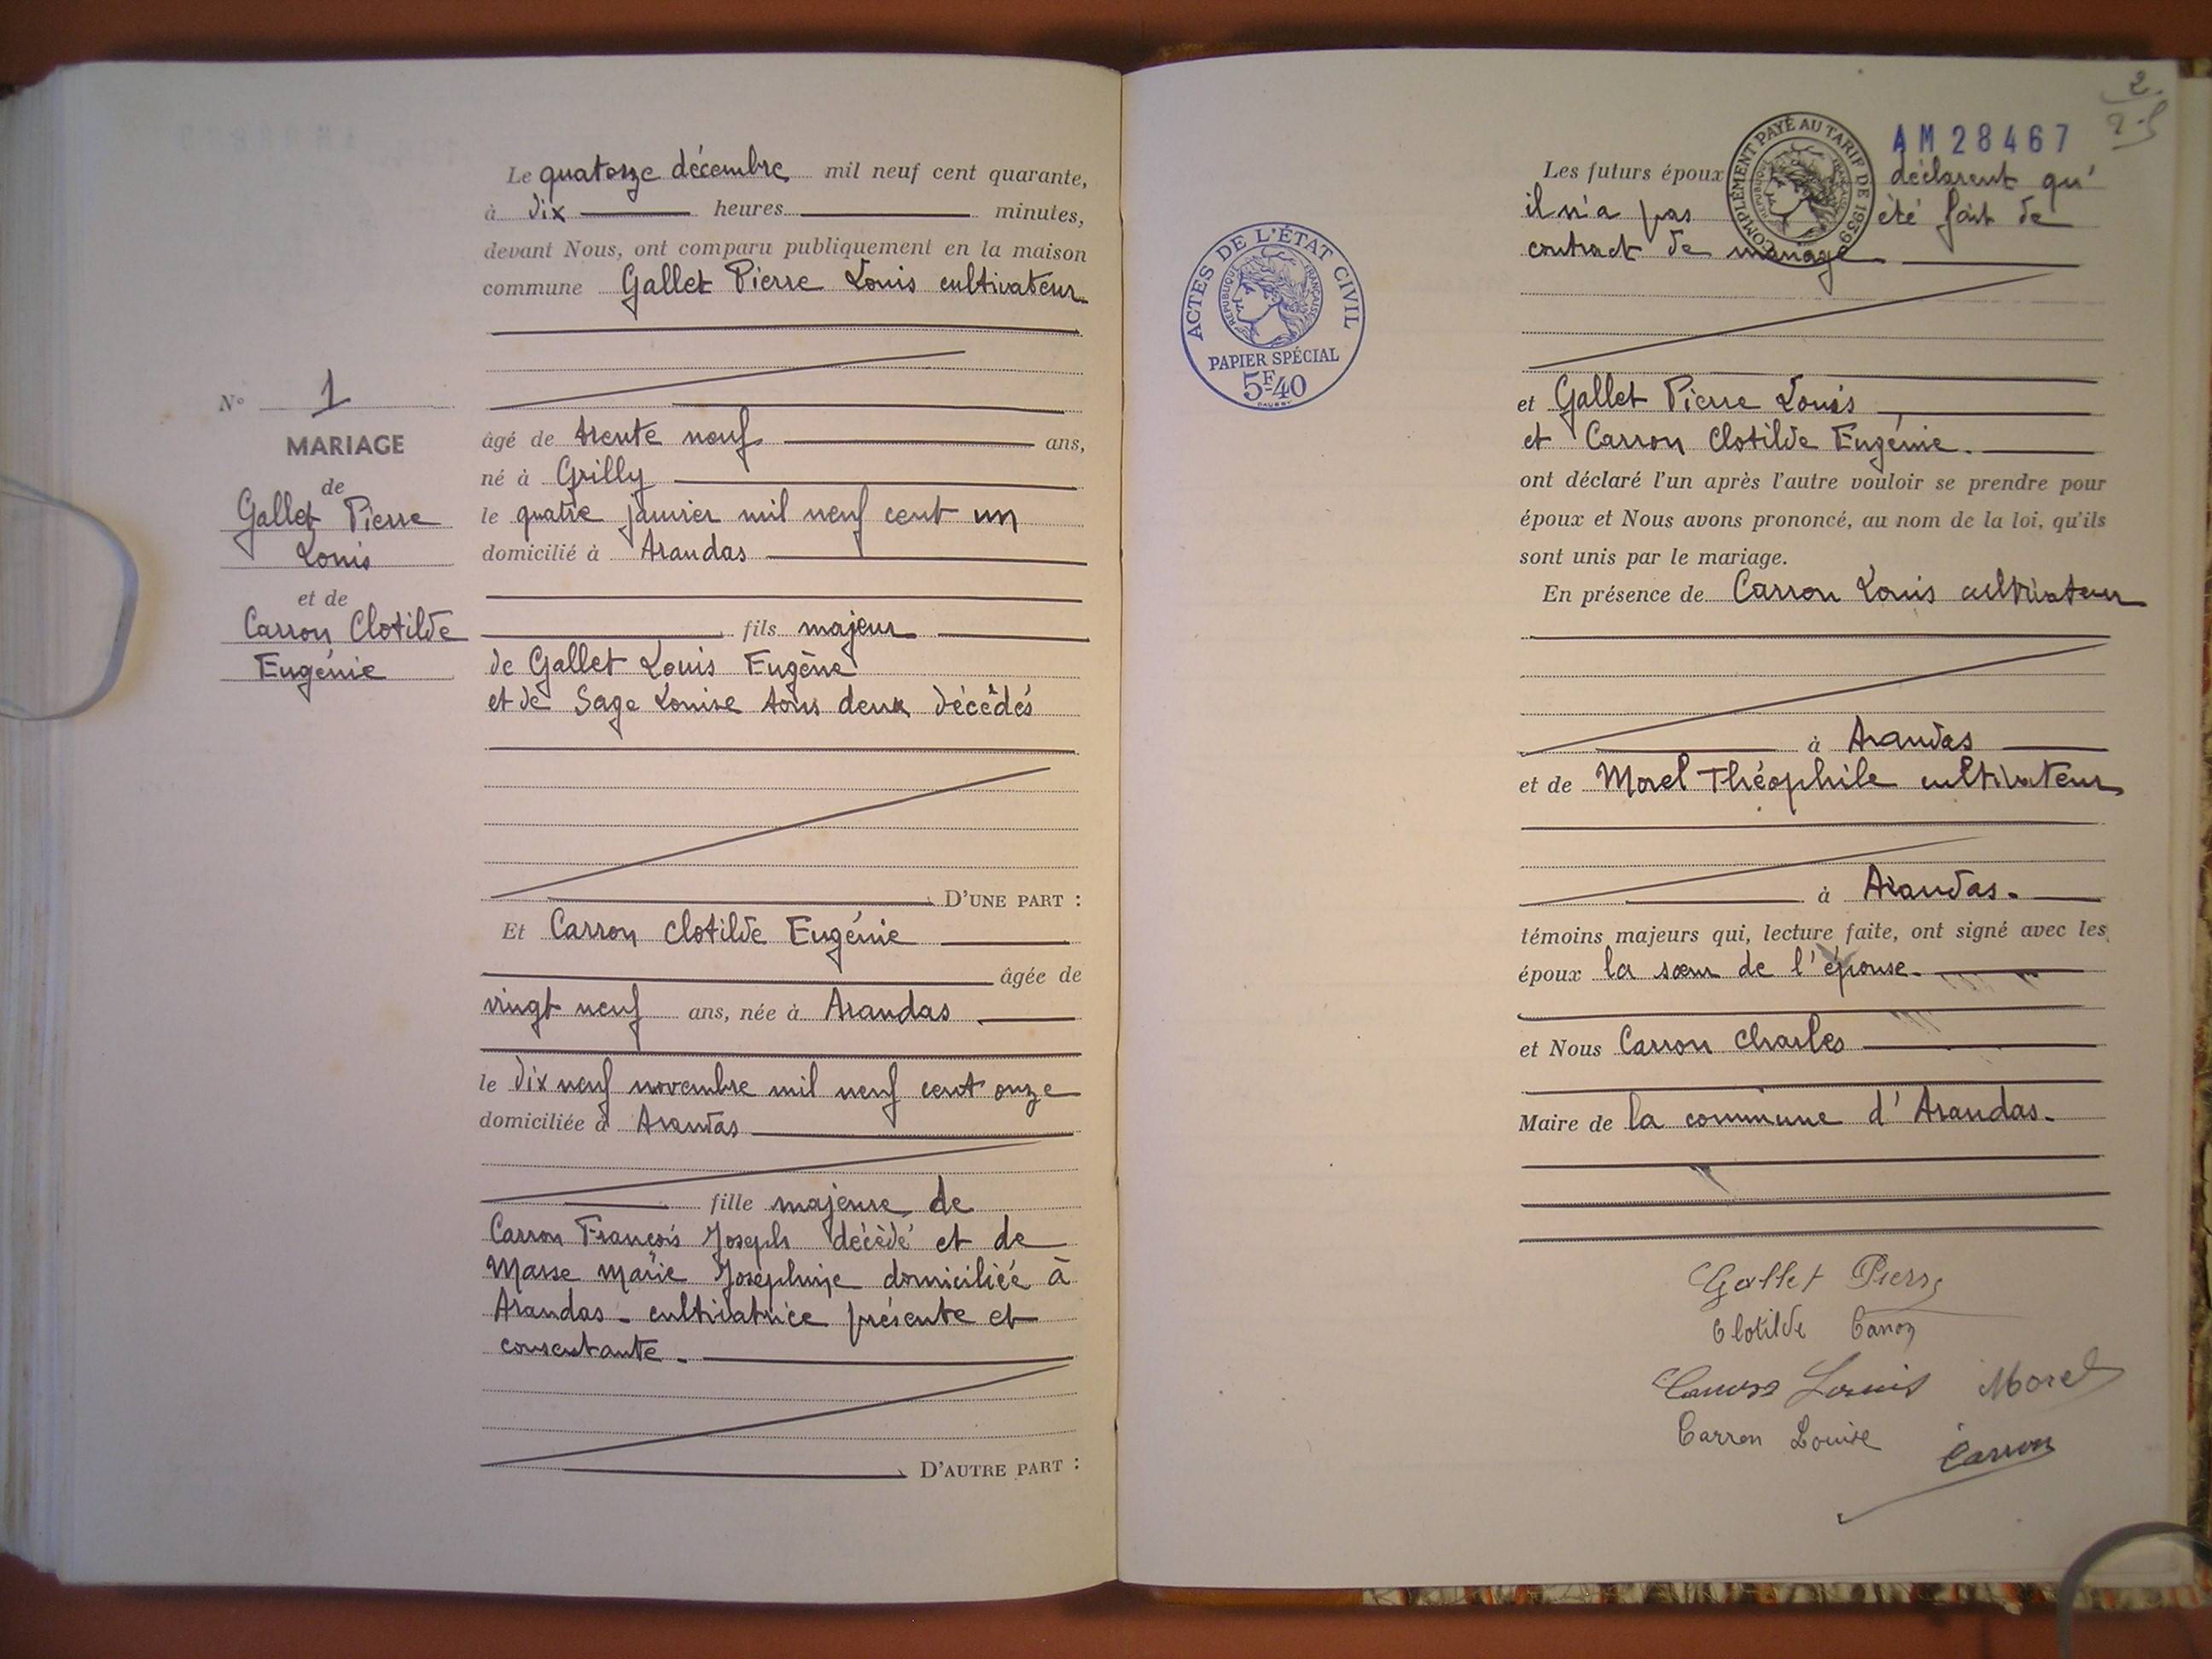 Le quatorze décembre mil neuf cent quarante,
à dix heures minutes,
devant Nous, ont comparu publiquement en la maison
commune Gallet Pierre Louis cultivateur
N° 1
MARIAGE
de
Gallet Pierre
Louis
et de
Carron Clotilde
Eugénie
âgé de trente neuf ans,
né à Grilly
le quatre janvier mil neuf cent un
domicilié à Arandas
fils majeur
de Gallet Louis Eugène
et de Sage Louise tous deux décédés
D'UNE PART :
Et Carron Clotilde Eugénie
âgée de
vingt neuf ans, née à Arandas
le dix neuf novembre mil neuf cent onze
domiciliée à Arandas
fille majeure de
Carron François Joseph décèdé et de
Masse Marie Josephine domiciliée à
Arandas - cultivatrice présente et
consentante.
D'AUTRE PART :
ACTES DE L'ÉTAT CIVIL
RÉPUBLIQUE FRANÇAISE
PAPIER SPÉCIAL
5F40
2
COMPLÉMENT PAYÉ AU TARIF DE 1939
AM 28467
Les futurs époux déclarent qu'
il n'a pas été fait de
contract de mariage
et Gallet Pierre Louis
et Carron Clotilde Eugénie.
ont déclaré l'un après l'autre vouloir se prendre pour
époux et Nous avons prononcé, au nom de la loi, qu'ils
sont unis par le mariage.
En présence de Carron Louis cultivateur
à Arandas
et de Morel Théophile cultivateur
à Arandas.
témoins majeurs qui, lecture faite, ont signé avec les
époux la sœur de l'épouse.
et Nous Carron Charles
Maire de la commune d'Arandas.
Gallet Pierre
Clotilde Carron
Carron Louis Morel
Carron Louise
Carron